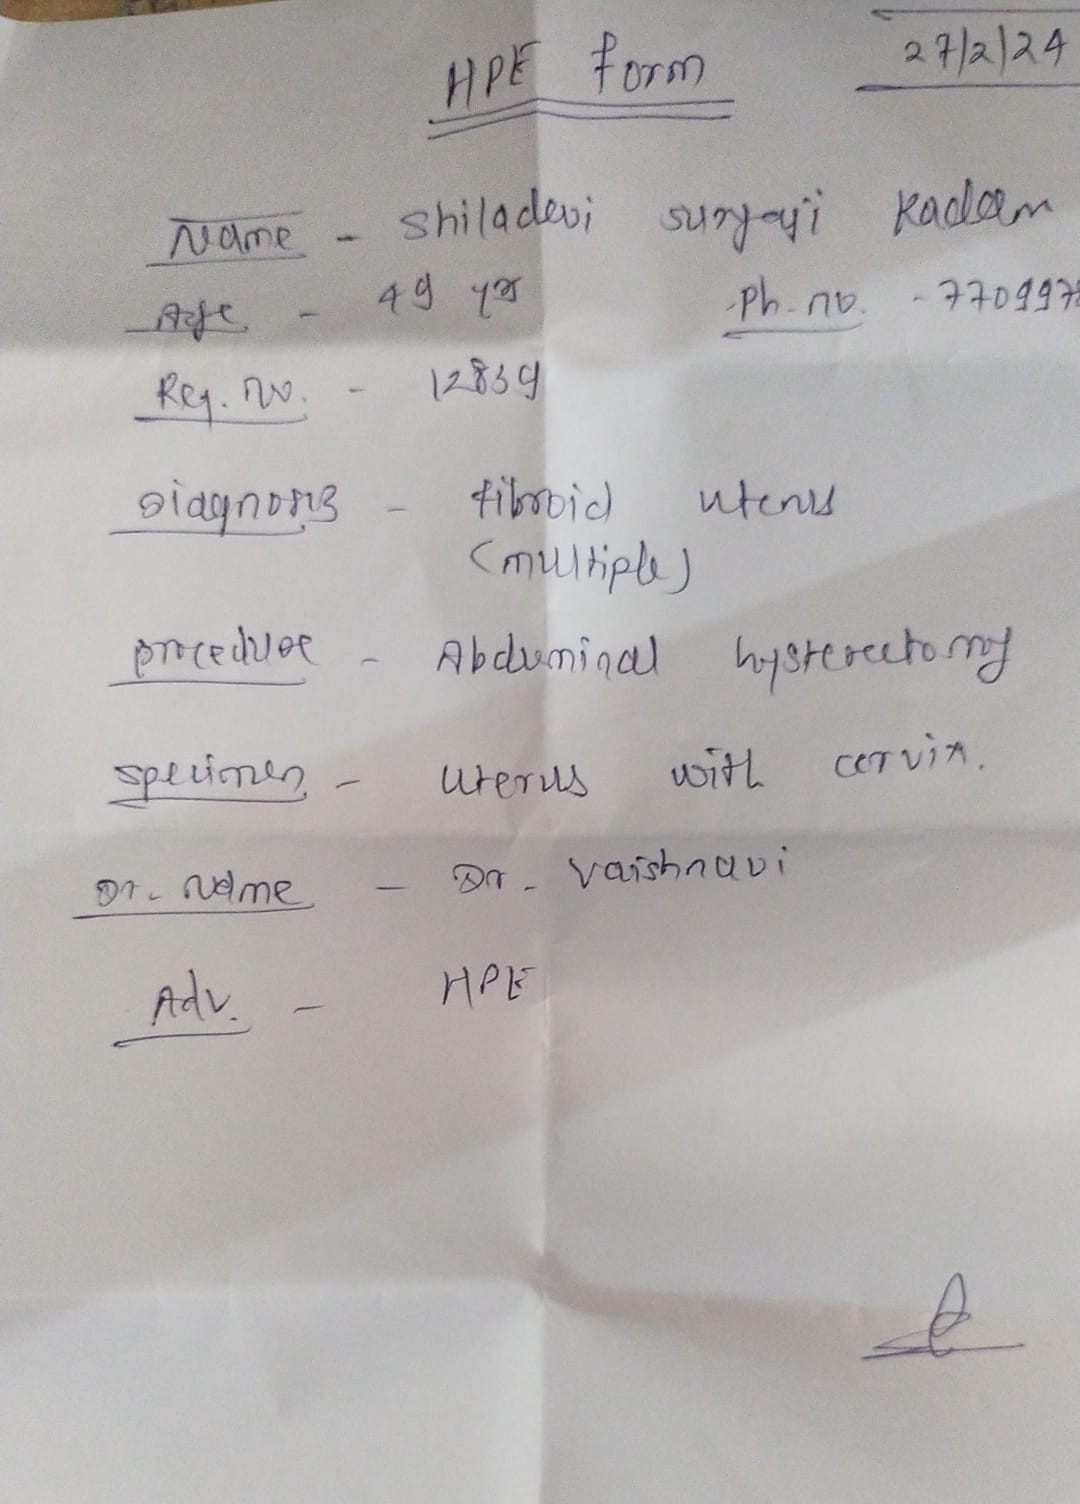 27/2/24
HPE form
Name - Shiladevi Suryaji Kadam
Age - 49 yrs Ph. no. - 770997
Reg. no. - 12839
Diagnosis - fibroid uterus
(multiple)
procedure - Abduminal hysterectomy
specimen - uterus with cervix.
Dr. Name - Dr. Vaishnavi
Adv. - HPE